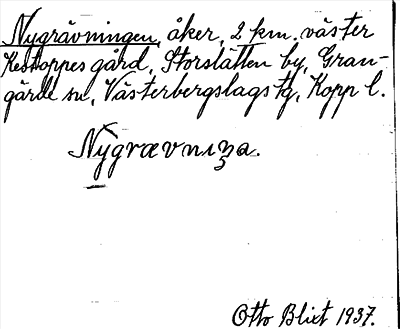 Nygrävningen, åker, 2 km. väster
Kestoppes gård, Storslätten by, Gran-
gärde sn, Västerbergslags tg, Kopp l.
Nygrævnıŋa.
Otto Blixt 1937.